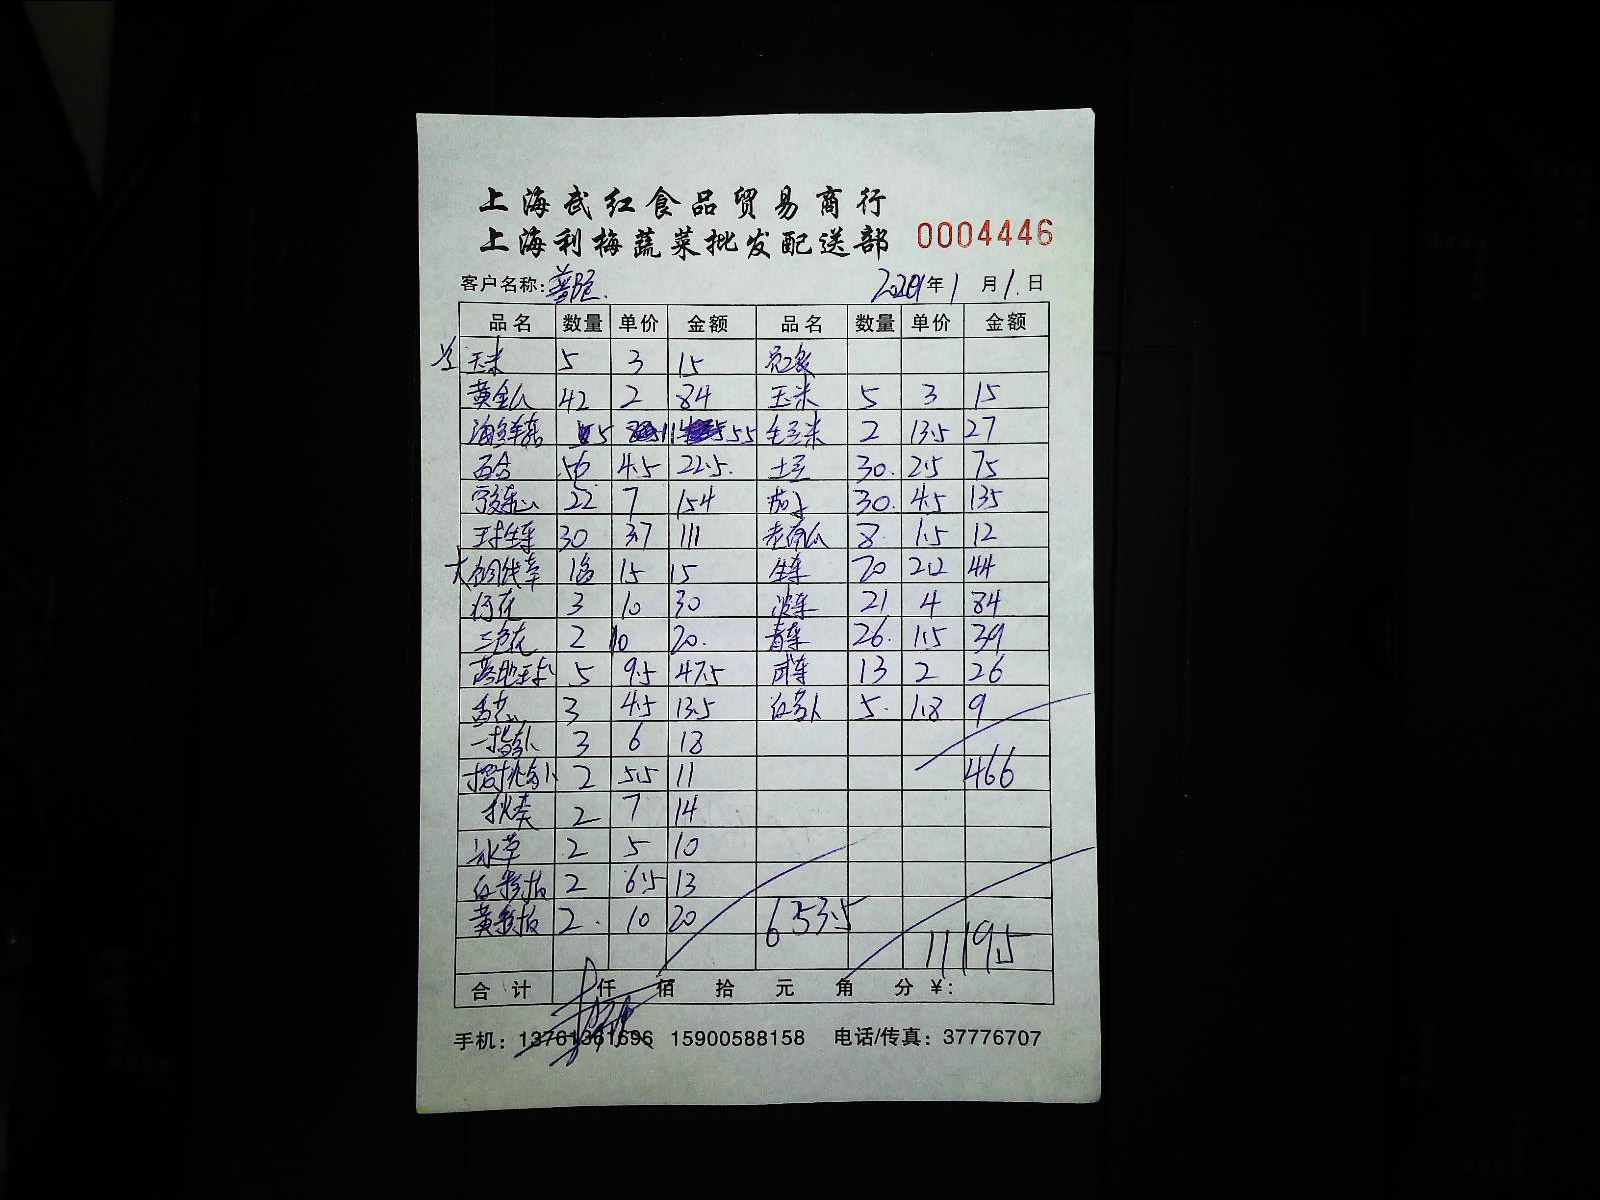 上海武红食品贸易商行
上海利梅蔬菜批发配送部 0004446
客户名称: 年 1 月 1 日
品名 数量 单价 金额 品名 数量 单价 金额
玉米 5 3 15
黄金瓜 42 2 84 玉米 5 3 15
海鲜菇 5 11 55 毛豆米 2 13.5 27
百合 4.5 22.5 土豆 30 2.5 75
22 7 154 茄子 30 4.5 135
球生菜 30 3.7 111 老南瓜 8 1.5 12
大 15 15 生菜 20 2.2 44
3 10 30 菠菜 21 4 84
三色花 2 10 20 青菜 26 1.5 39
5 9.5 47.5 13 2 26
3 4.5 13.5 红萝卜 5 1.8 9
一指萝卜 3 6 18
樱桃萝卜 2 5.5 11 466
秋葵 2 7 14
冰草 2 5 10
红彩椒 2 6.5 13
黄彩椒 2 10 20 653.5
1119.5
合计 仟 佰 拾 元 角 分 ¥:
手机: 13761361696 15900588158 电话/传真: 37776707